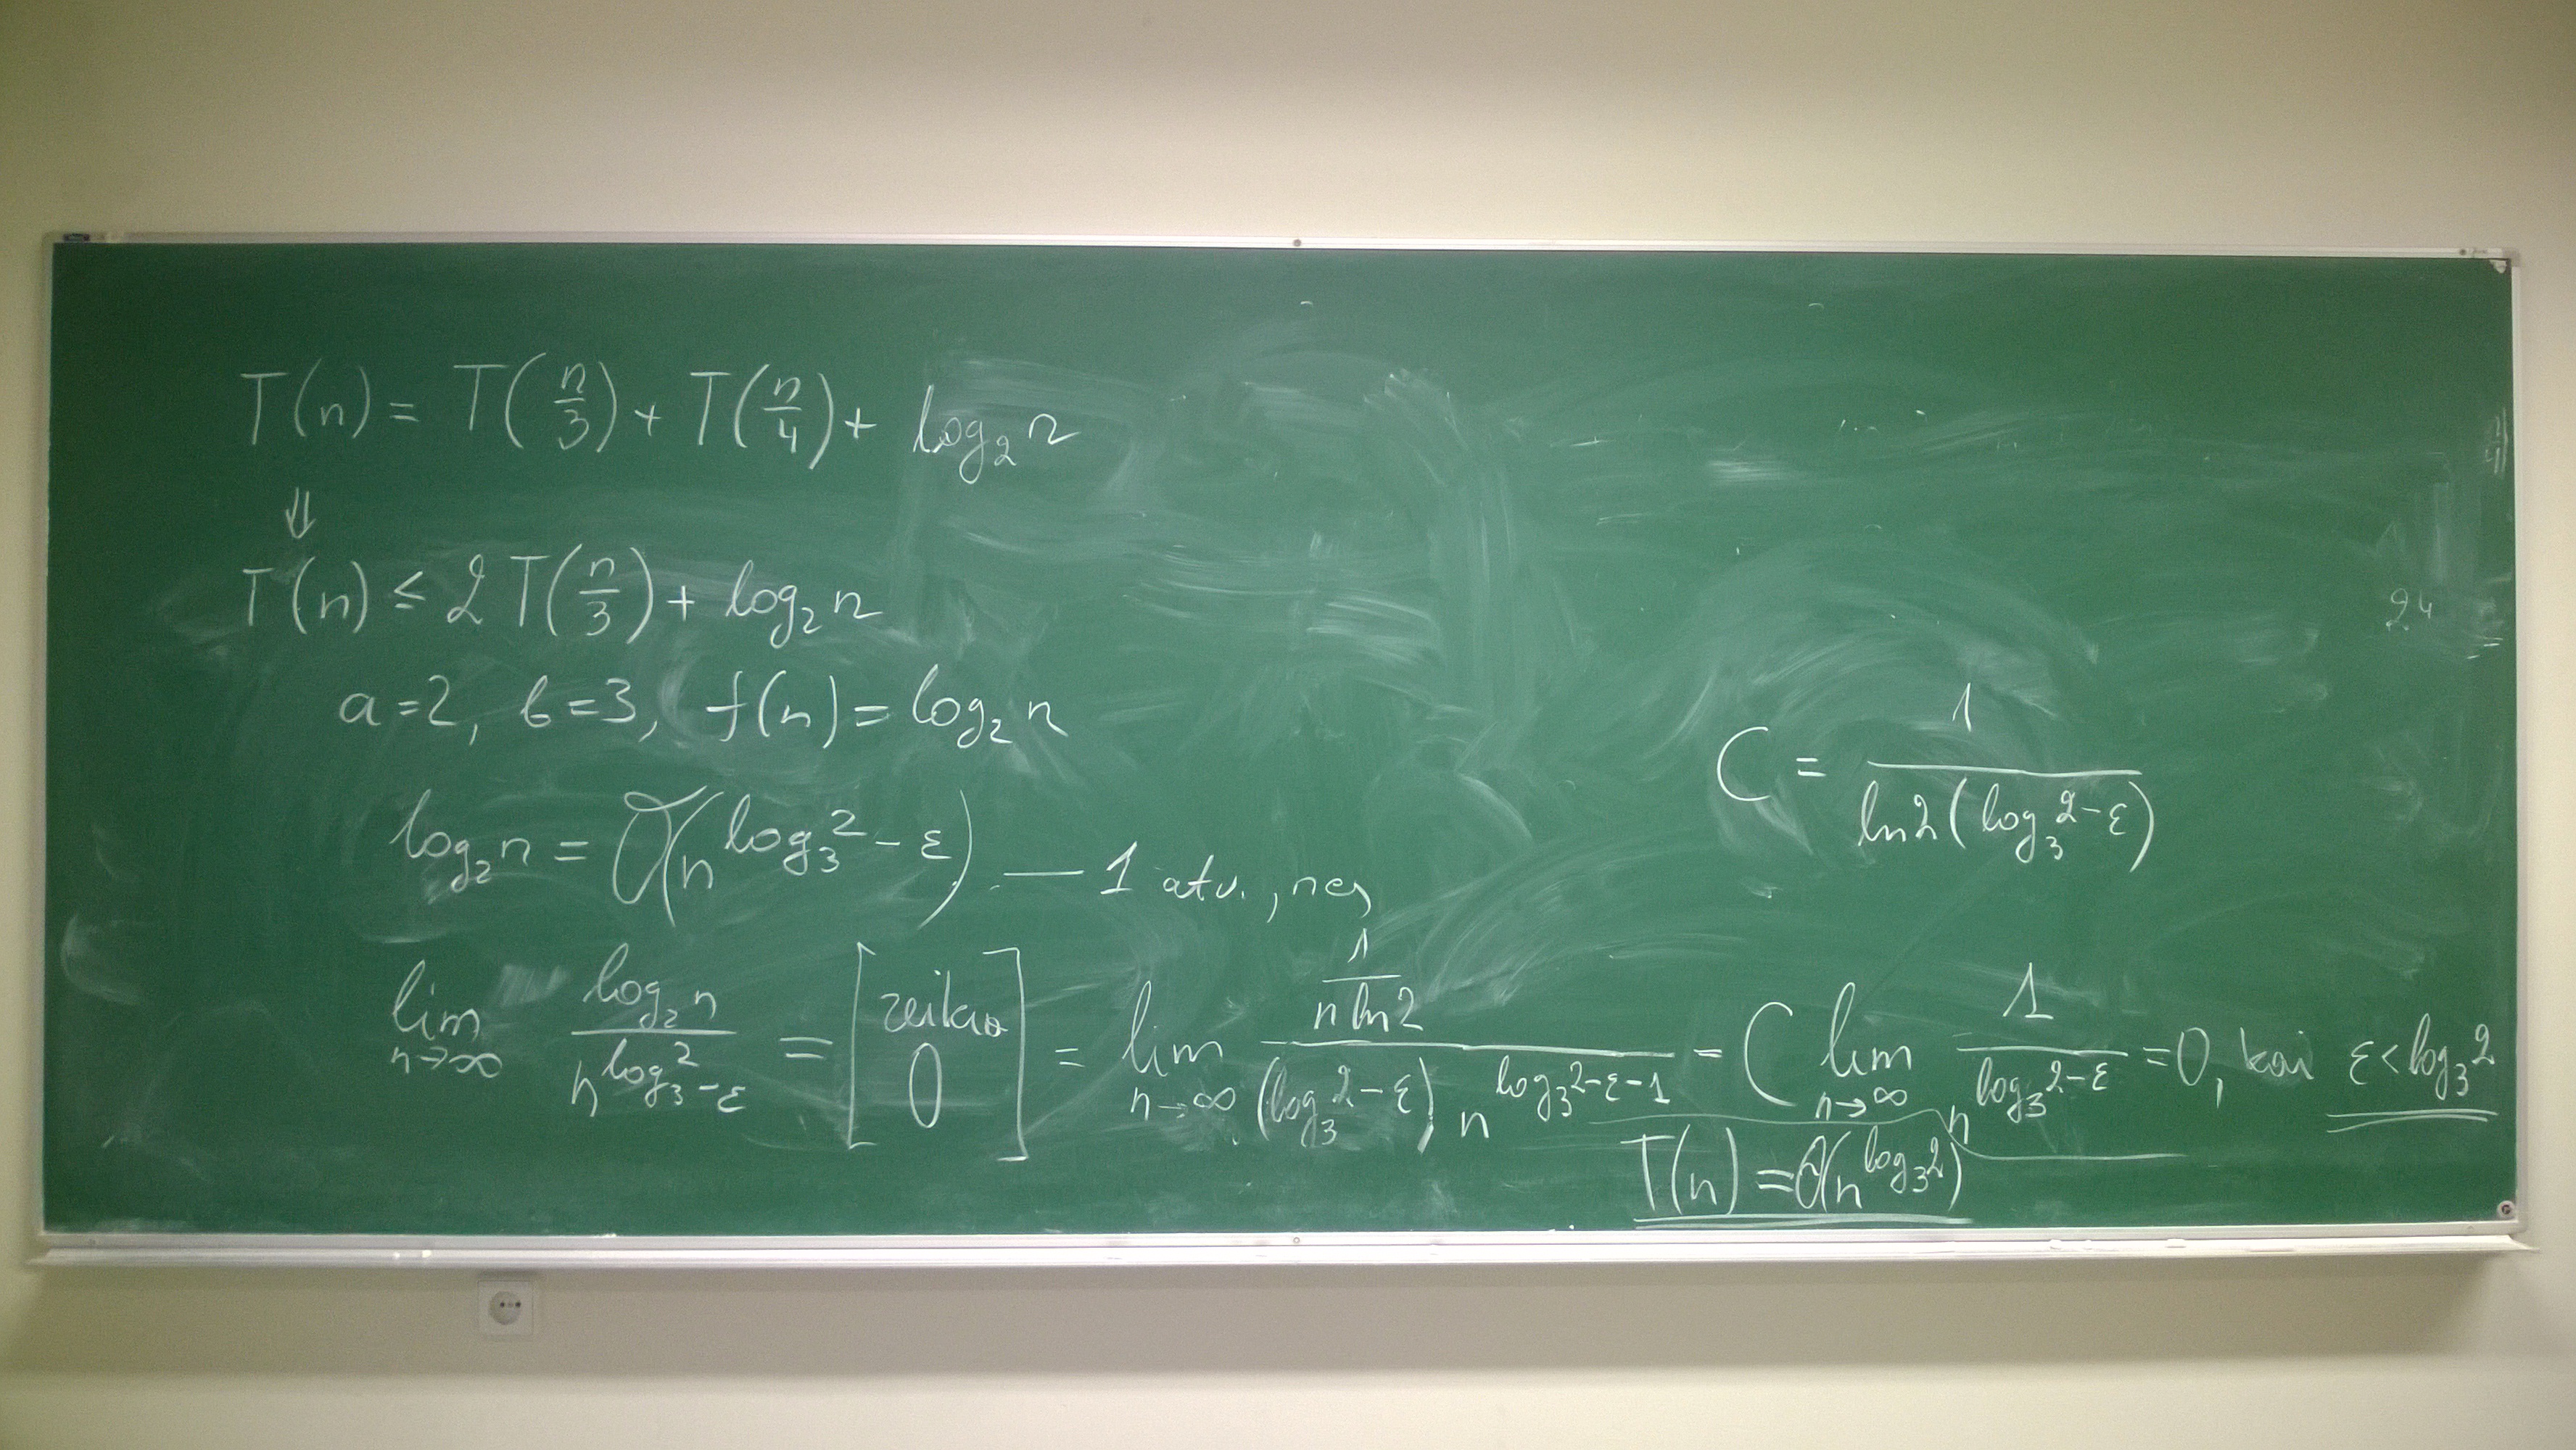 T(n) = T(n/3) + T(n/4) + log₂ n
⇓
T(n) ≤ 2T(n/3) + log₂ n
a=2, b=3, f(n) = log₂ n
C = 1/(ln2(log₃2-ε))
log₂n = O(n^(log₃2-ε)) — 1 atv., nes
lim n→∞ log₂n / n^(log₃2-ε) = [reikia 0] = lim n→∞ (1/(n ln2)) / ((log₃2-ε) n^(log₃2-ε-1)) = C lim n→∞ 1/n^(log₃2-ε) = 0, kai ε<log₃2
T(n) = O(n^(log₃2))
24